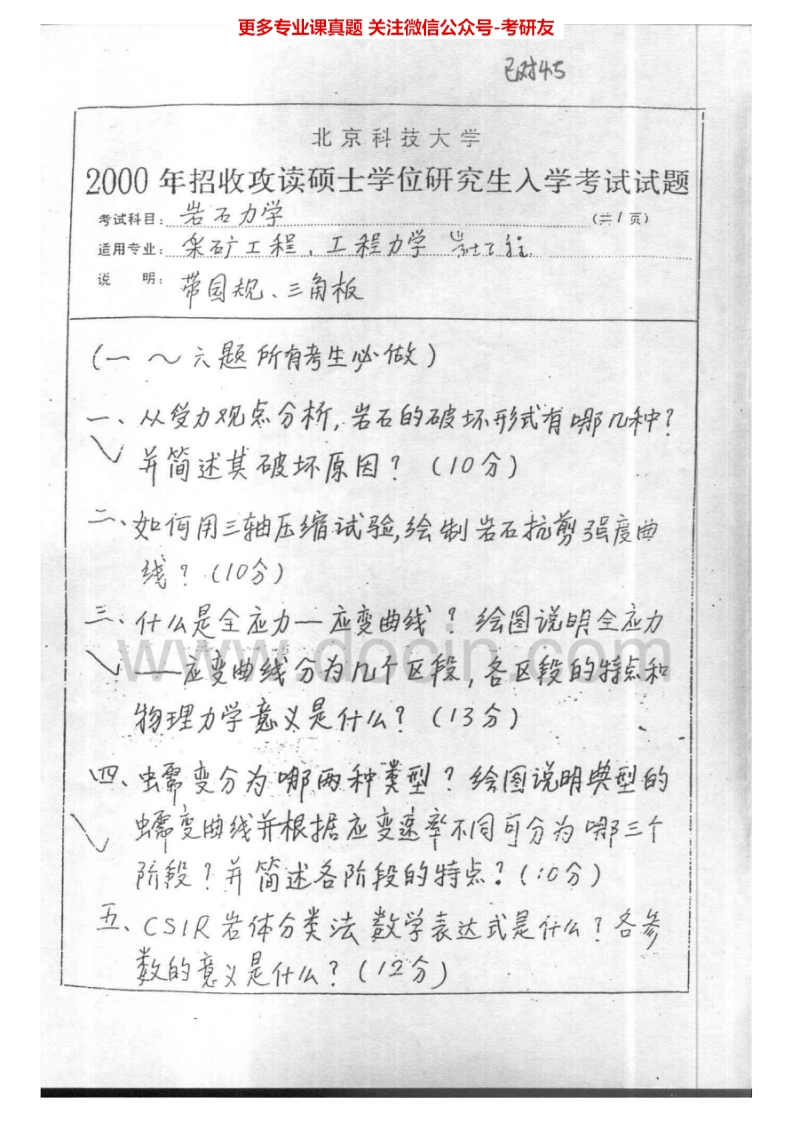 更多专业课真题 关注微信公众号-考研友
已对45
北京科技大学
2000 年招收攻读硕士学位研究生入学考试试题
考试科目: 岩石力学 (共1页)
适用专业: 采矿工程、工程力学 岩土工程
说 明: 带园规、三角板
(一 ～ 六题 所有考生必做)
一、从受力观点分析,岩石的破坏形式有哪几种?
并简述其破坏原因? (10分)
二、如何用三轴压缩试验,绘制岩石抗剪强度曲
线? (10分)
三、什么是全应力—应变曲线? 绘图说明全应力
www.docin.com
——应变曲线分为几个区段,各区段的特点和
物理力学意义是什么? (13分)
四、蠕变分为哪两种类型? 绘图说明典型的
蠕变曲线并根据应变速率不同可分为哪三个
阶段? 并简述各阶段的特点? (10分)
五、CSIR岩体分类法数学表达式是什么? 各参
数的意义是什么? (12分)